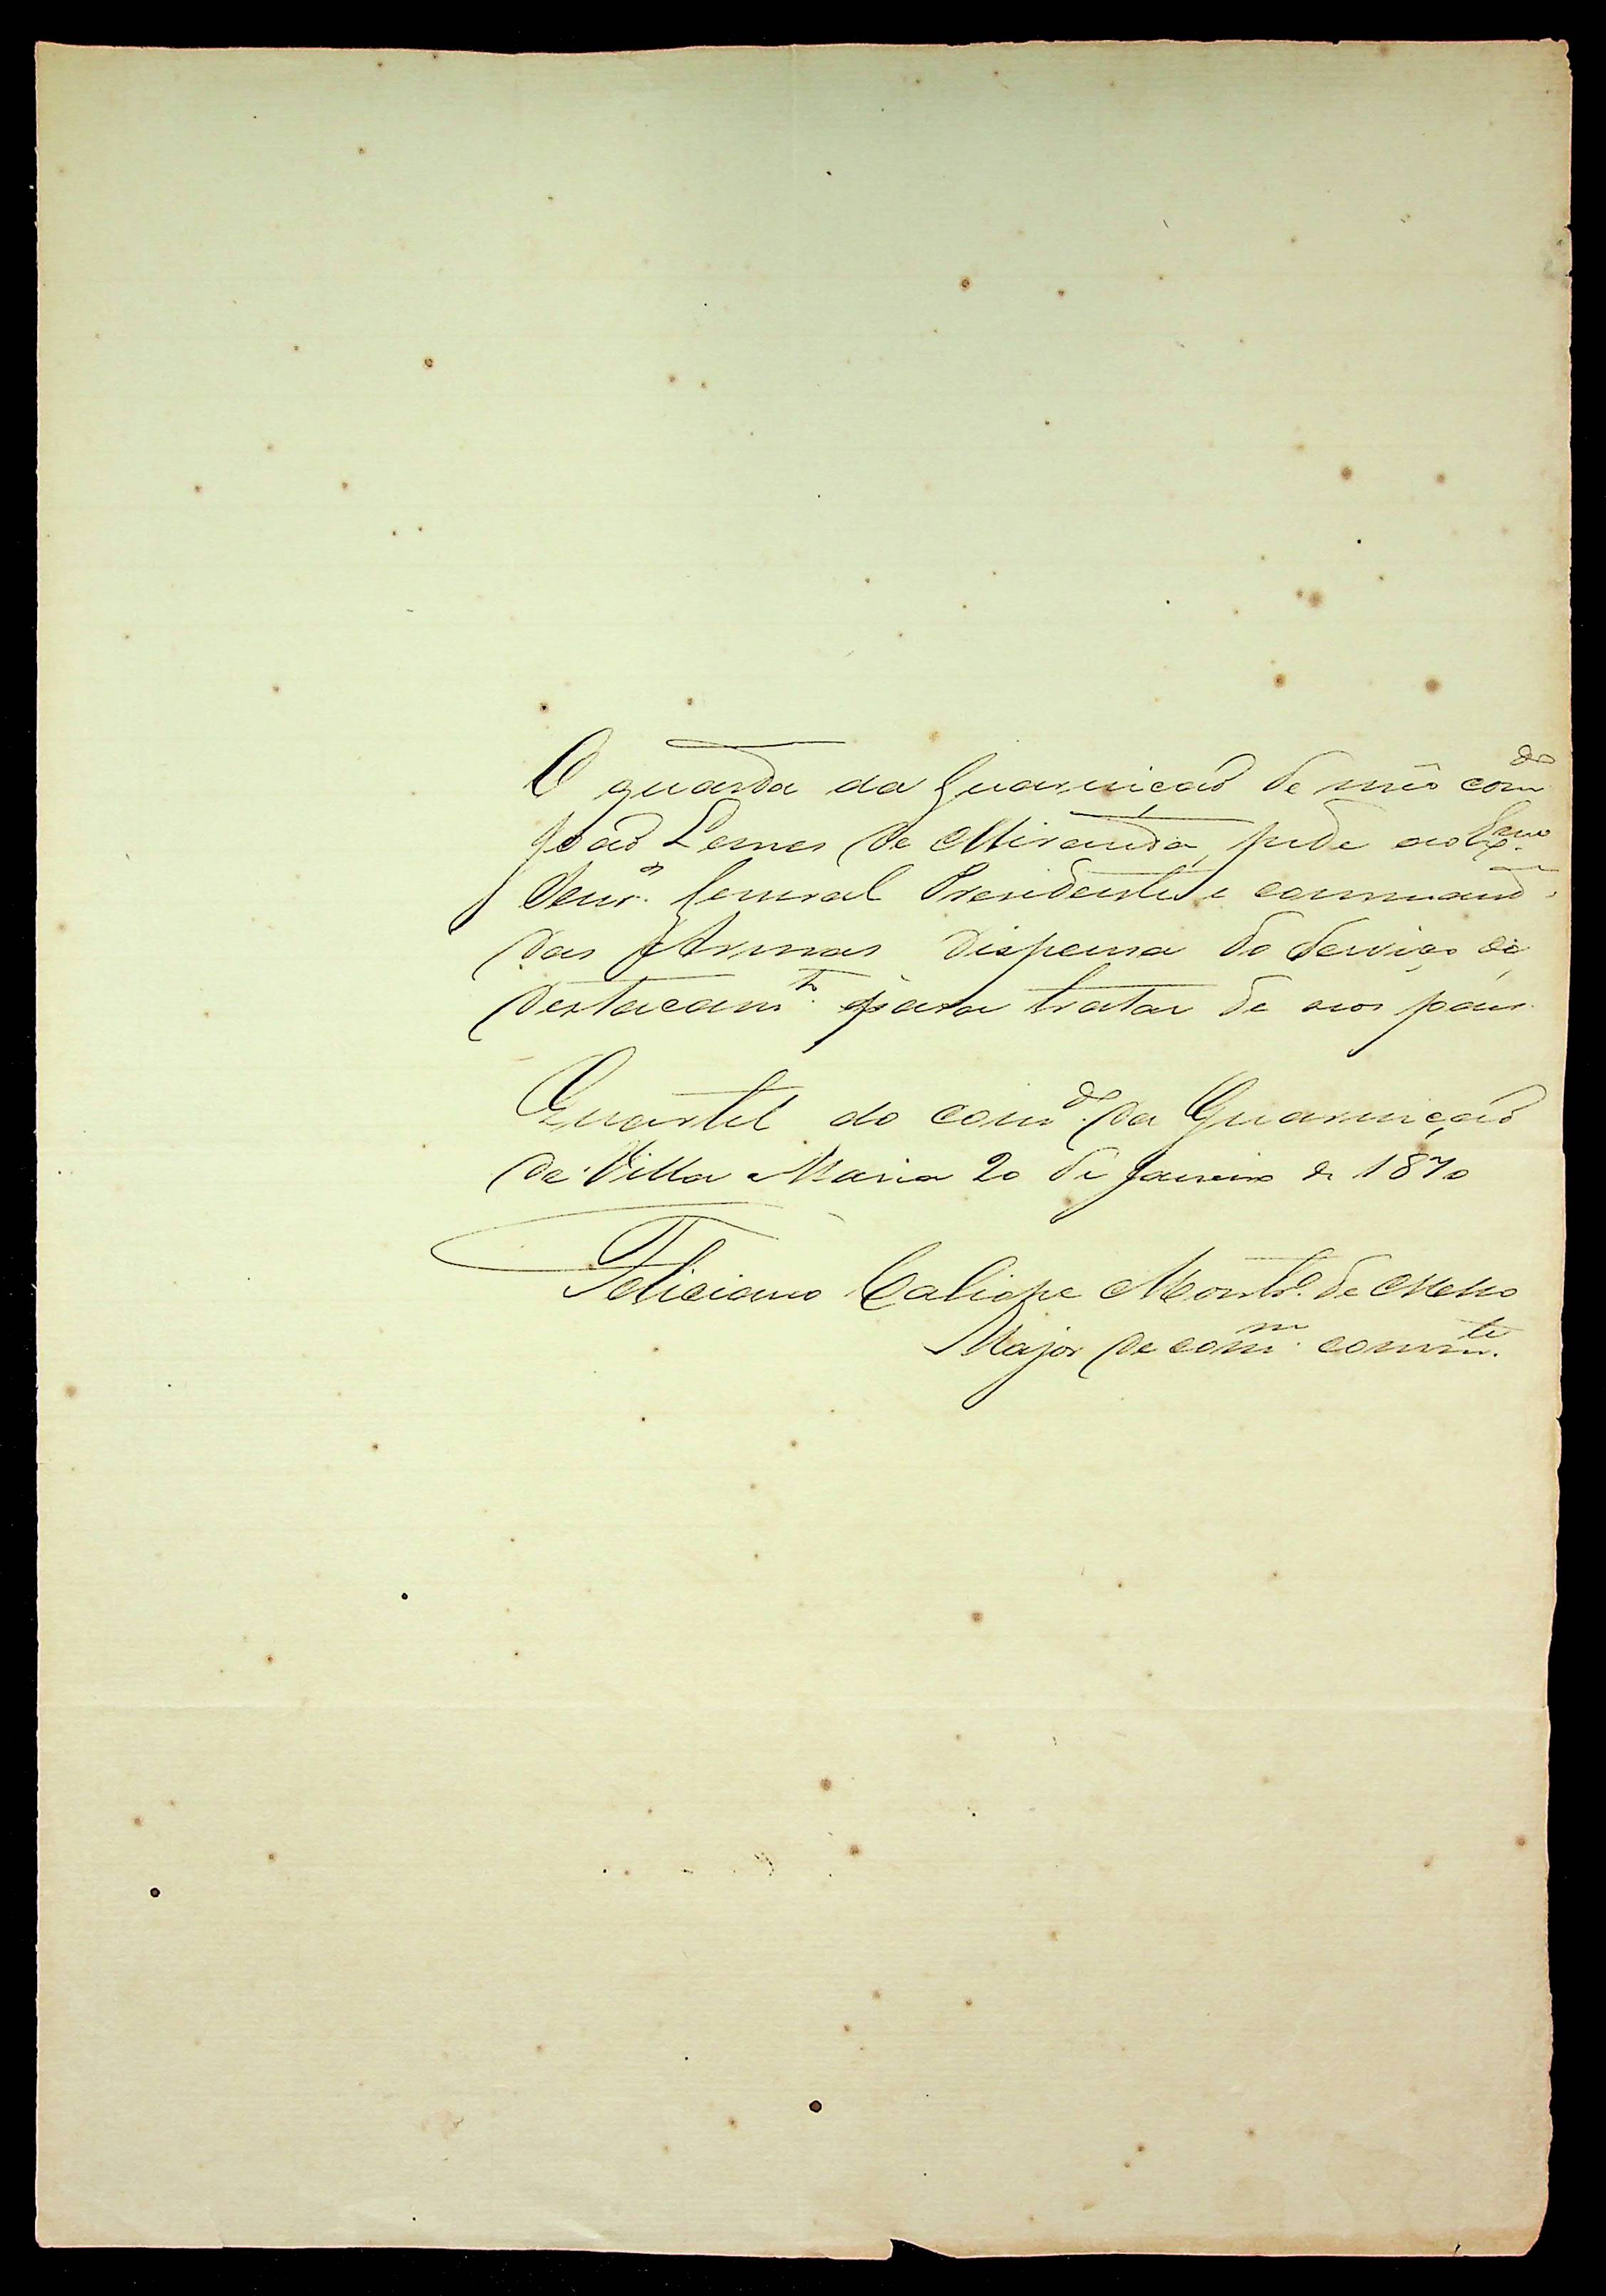 O guarda da Guarnicaõ de meo com.do
João Lemes de Miranda, pede ao Ex.mo
Senr. General Presidente e command.e
das Armas dispensa do serviço de
destacam.to para tratar de seos pais.
Quartel do com.do da Guarnição
de Villa Maria 20 de Janeiro de 1870
Feliciano Caliope Montr.o de Mello
Major de com.m comm.te